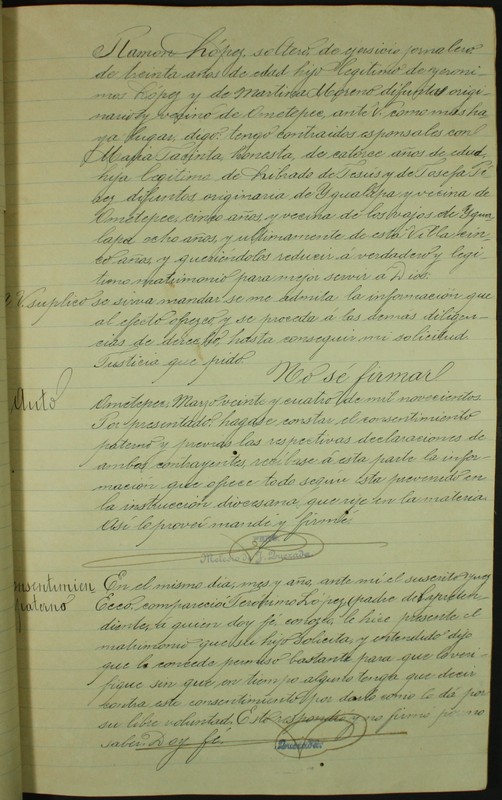 Ramon López, soltero de ejercicio jornalero
de treinta años de edad hijo legitimo de Geroni-
mo López y de Martina Moreno difunta origi-
nario y vecino de Ometepec, ante V. como mas ha-
ya lugar, digo: tengo contraidos esponsales con
Maria Jacinta, honesta, de catorce años de edad,
hija legitima de Librado de Jesus y de Josefa
difuntos originaria de Ygualapa y vecina de
Ometepec, cinco años, y vecina de los bajos de Ygua-
lapa ocho años, y ultimamente de esta Villa cin-
co años, y queriéndolos reducir á verdadero y legi-
timo matrimonio para mejor servir á Dios.
A V. suplico se sirva mandar se me admita la información que
al efecto ofrezco y se proceda á las demas diligen-
cias de derecho, hasta conseguir mi solicitud.
Justicia que pido.
No sé firmar
Auto
Ometepec, Marzo veinte y cuatro de mil novecientos.
Por presentado, hagase constar el consentimiento
paterno y previas las respectivas declaraciones de
ambos contrayentes, recíbase á esta parte la infor-
mación que ofrece todo según esta prevenido en
la instrucción diocesana que rije en la materia.
Asi lo proveí mandé y firmé.
Quezada
Consentimien
paterno
En el mismo dia, mes y año, ante mi el suscrito Juez
Ecco, compareció Jerónimo López, padre del preten-
diente, á quien doy fé conozco, le hice presente el
matrimonio que su hijo solicita, y entendido dijo
que le concede permiso bastante para que lo veri-
fique sin que en tiempo alguno tenga que decir
contra este consentimiento por darlo como lo dá por
su libre voluntad. Esto respondió y no firmó por no
saber. Doy fé.
Quezada